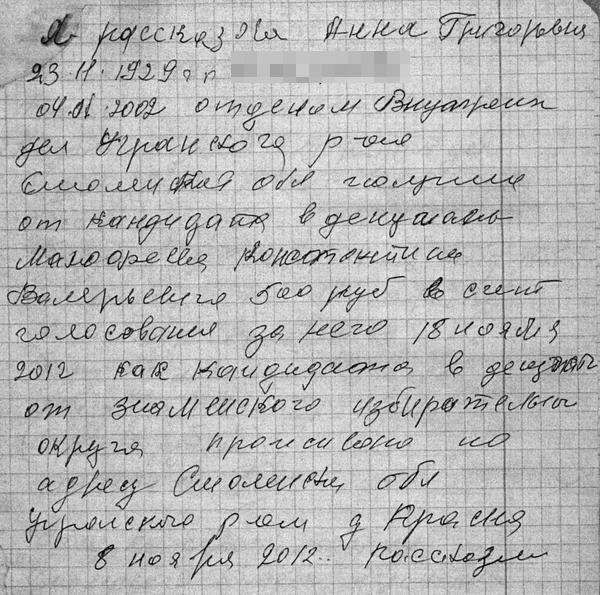 Я рассказова Анна Григорьвна
23.11.1929 г р
04.01.2002 отделом Внутрених
дел Угранского р она
Смоленской обл получила
от кандидата в депутаты
Константина
Валерьевича 500 руб в счет
голосования за него 18 ноября
2012 как кандидата в депутаты
от знаменского избирательны
округа проживаю по
адресу Смоленска обл
Угранского р он д Красня
8 ноября 2012.. Рассказов